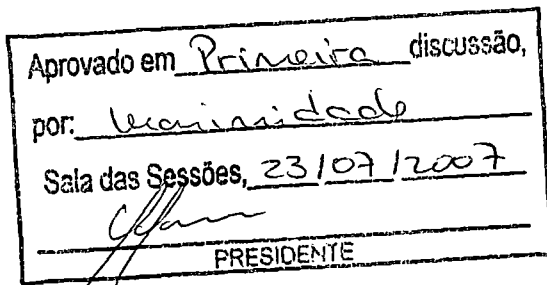 Aprovado em Primeira discussão,
por: Unanimidade
Sala das Sessões, 23/07/2007
PRESIDENTE